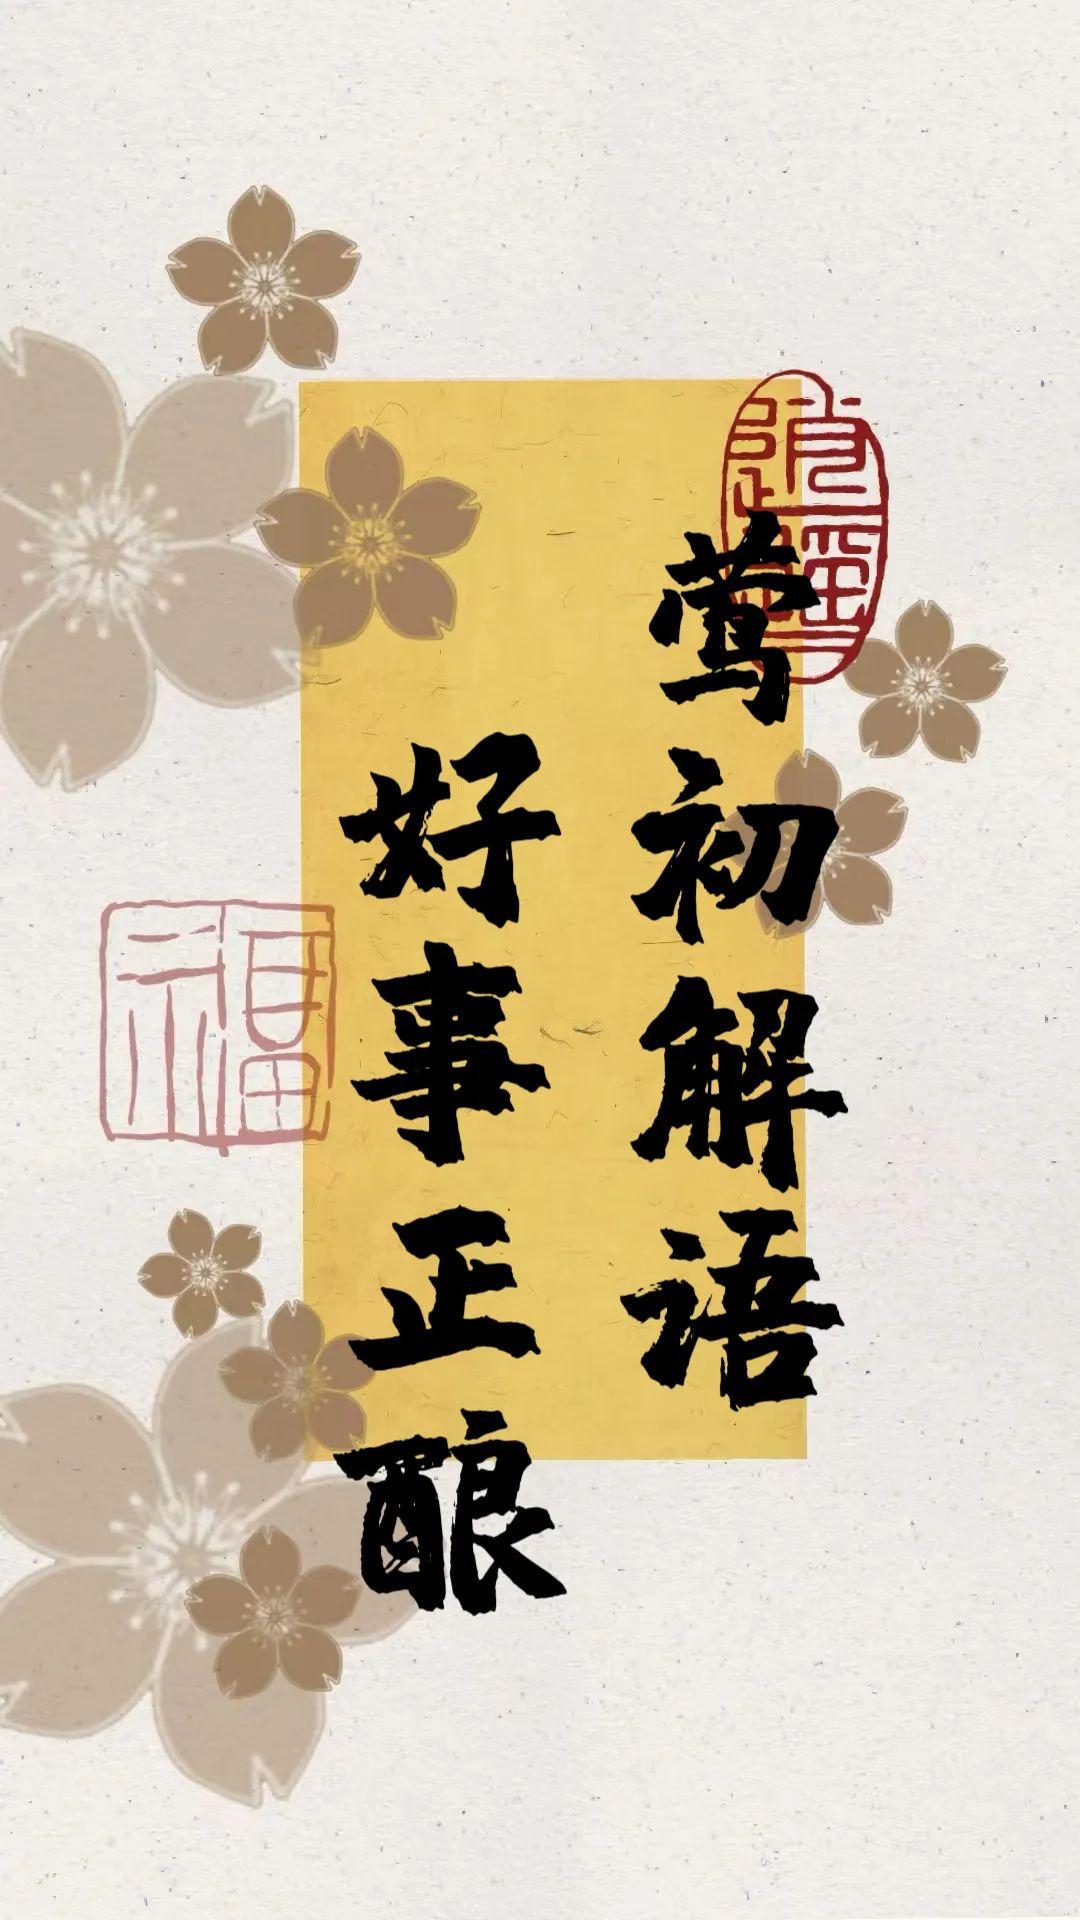 莺初解语
好事正酿
福